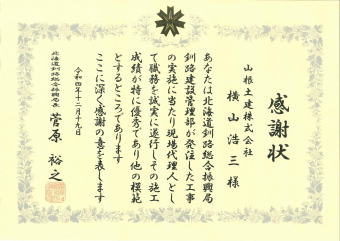 感謝状
山根土建株式会社
横山浩三様
あなたは北海道釧路総合振興局
釧路建設管理部が発注した工事
の実施に当たり現場代理人とし
て職務を誠実に遂行しその施工
成績が特に優秀であり他の模範
とするところであります
ここに深く感謝の意を表します
令和四年十二月十九日
北海道釧路総合振興局長
菅原裕之